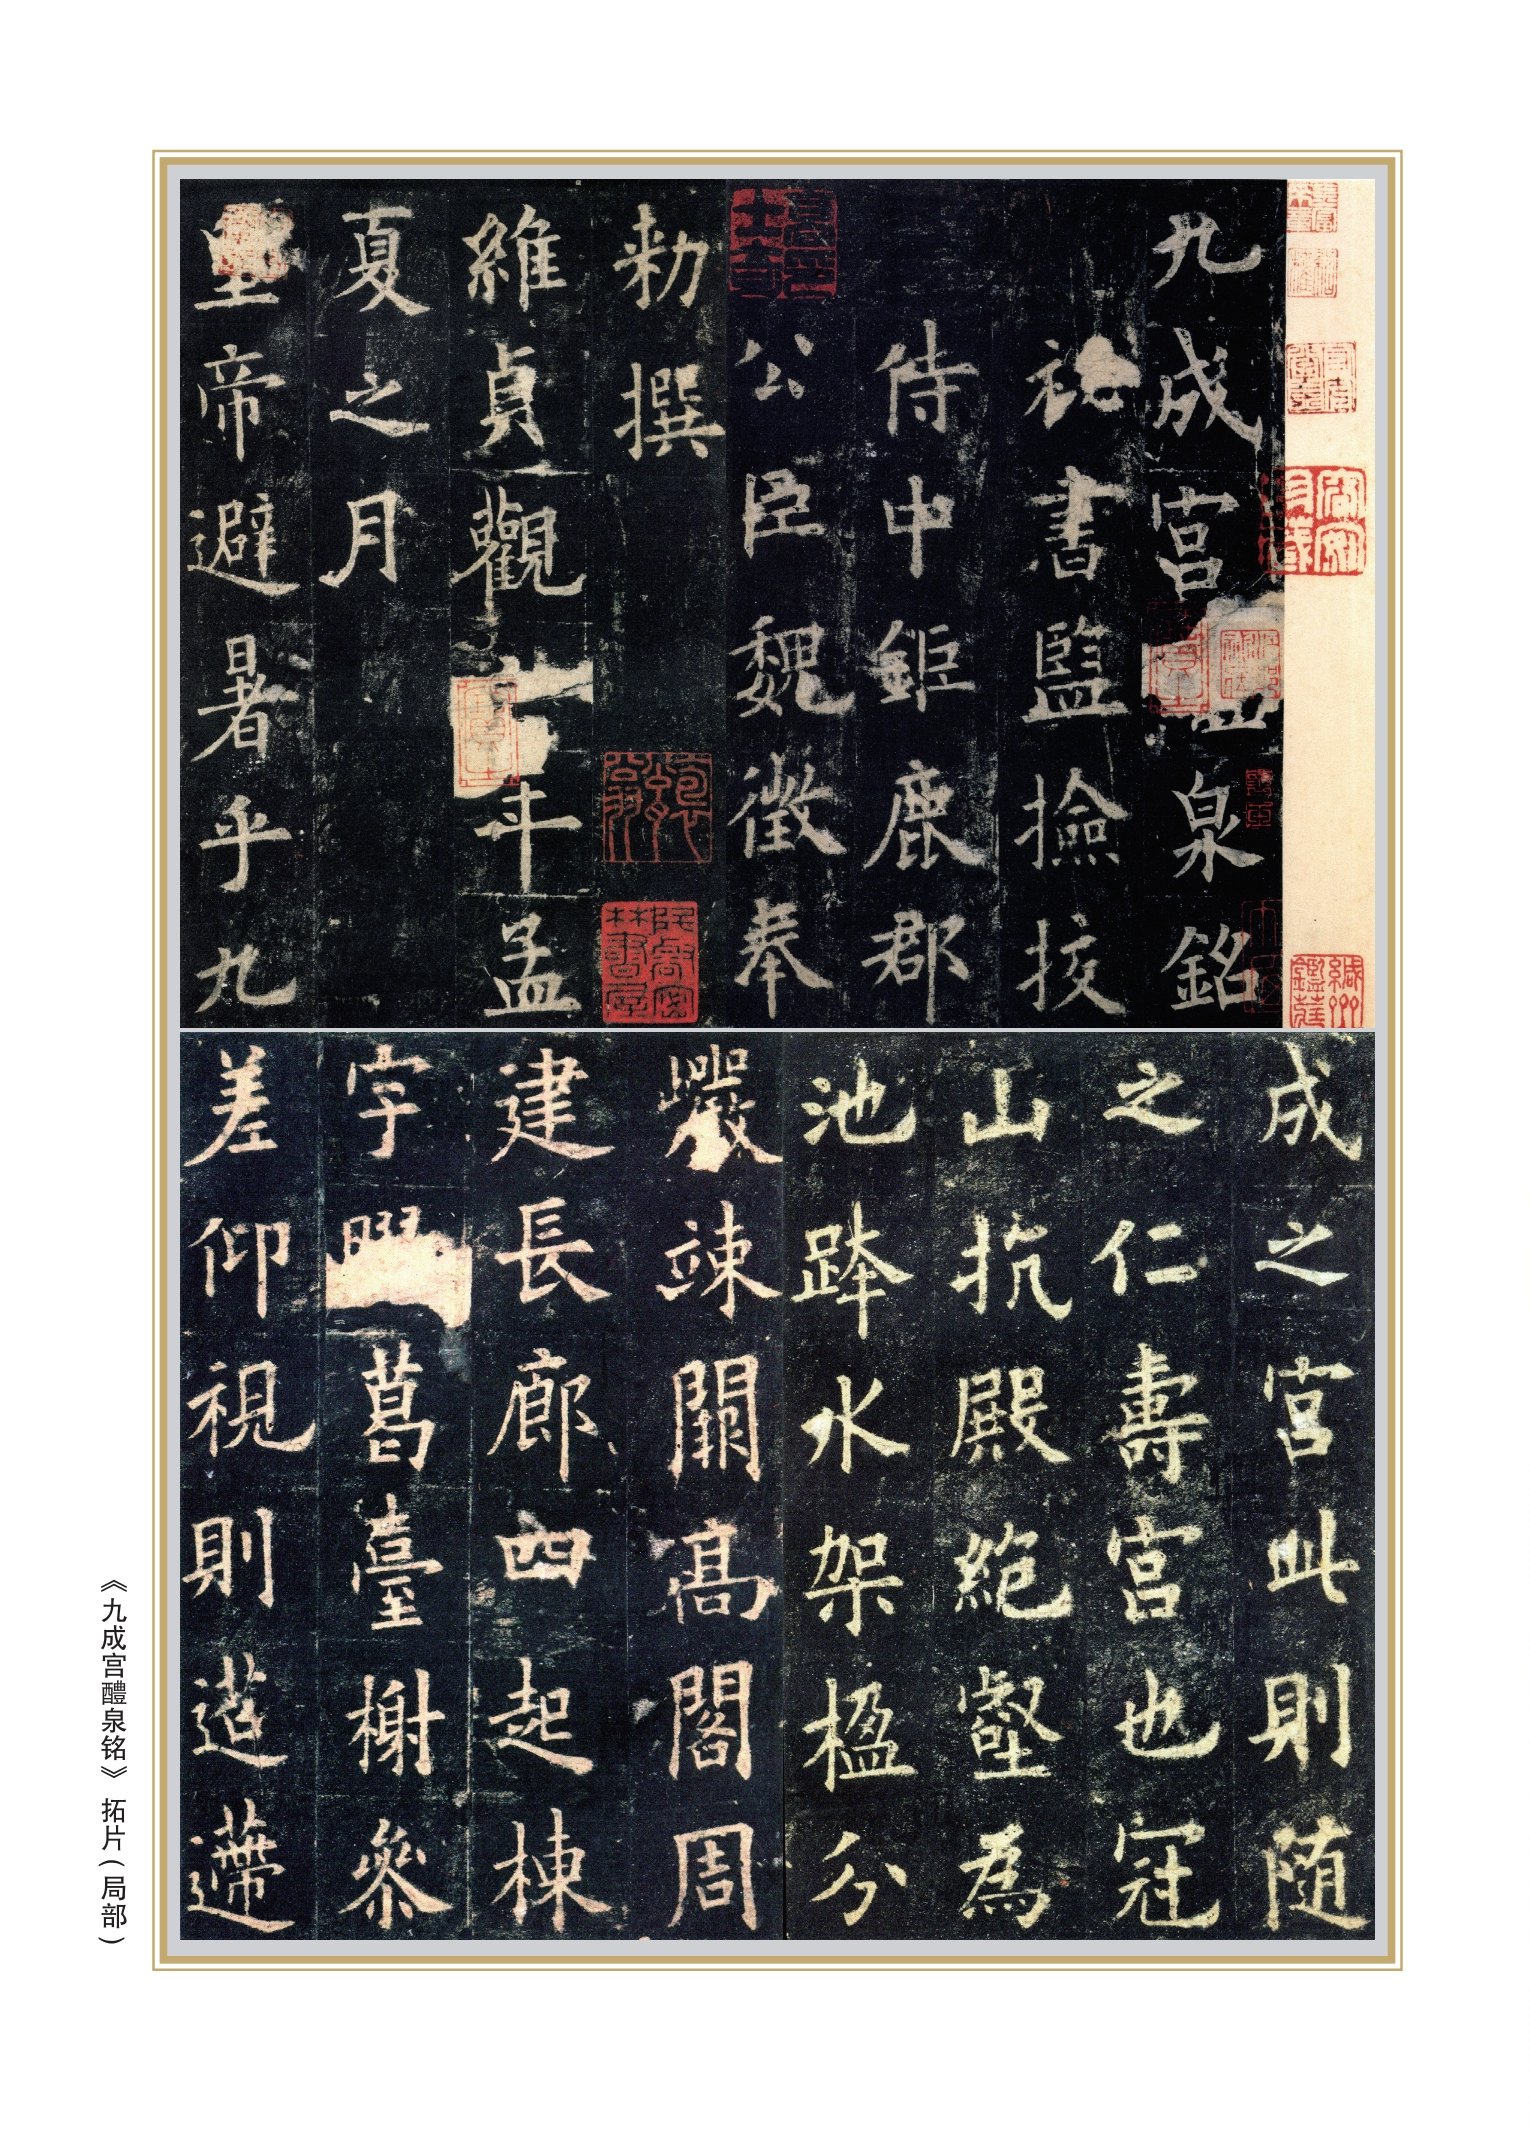 九成宮醴泉銘
秘書監撿挍
侍中鉅鹿郡
公臣魏徵奉
勑撰
維貞觀六年孟
夏之月
皇帝避暑乎九
成之宮此則随
之仁壽宮也冠
山抗殿絶壑為
池跨水架楹分
巖竦闕高閣周
建長廊四起棟
宇膠葛臺榭參
差仰視則迢遰
《九成宫醴泉铭》拓片(局部)